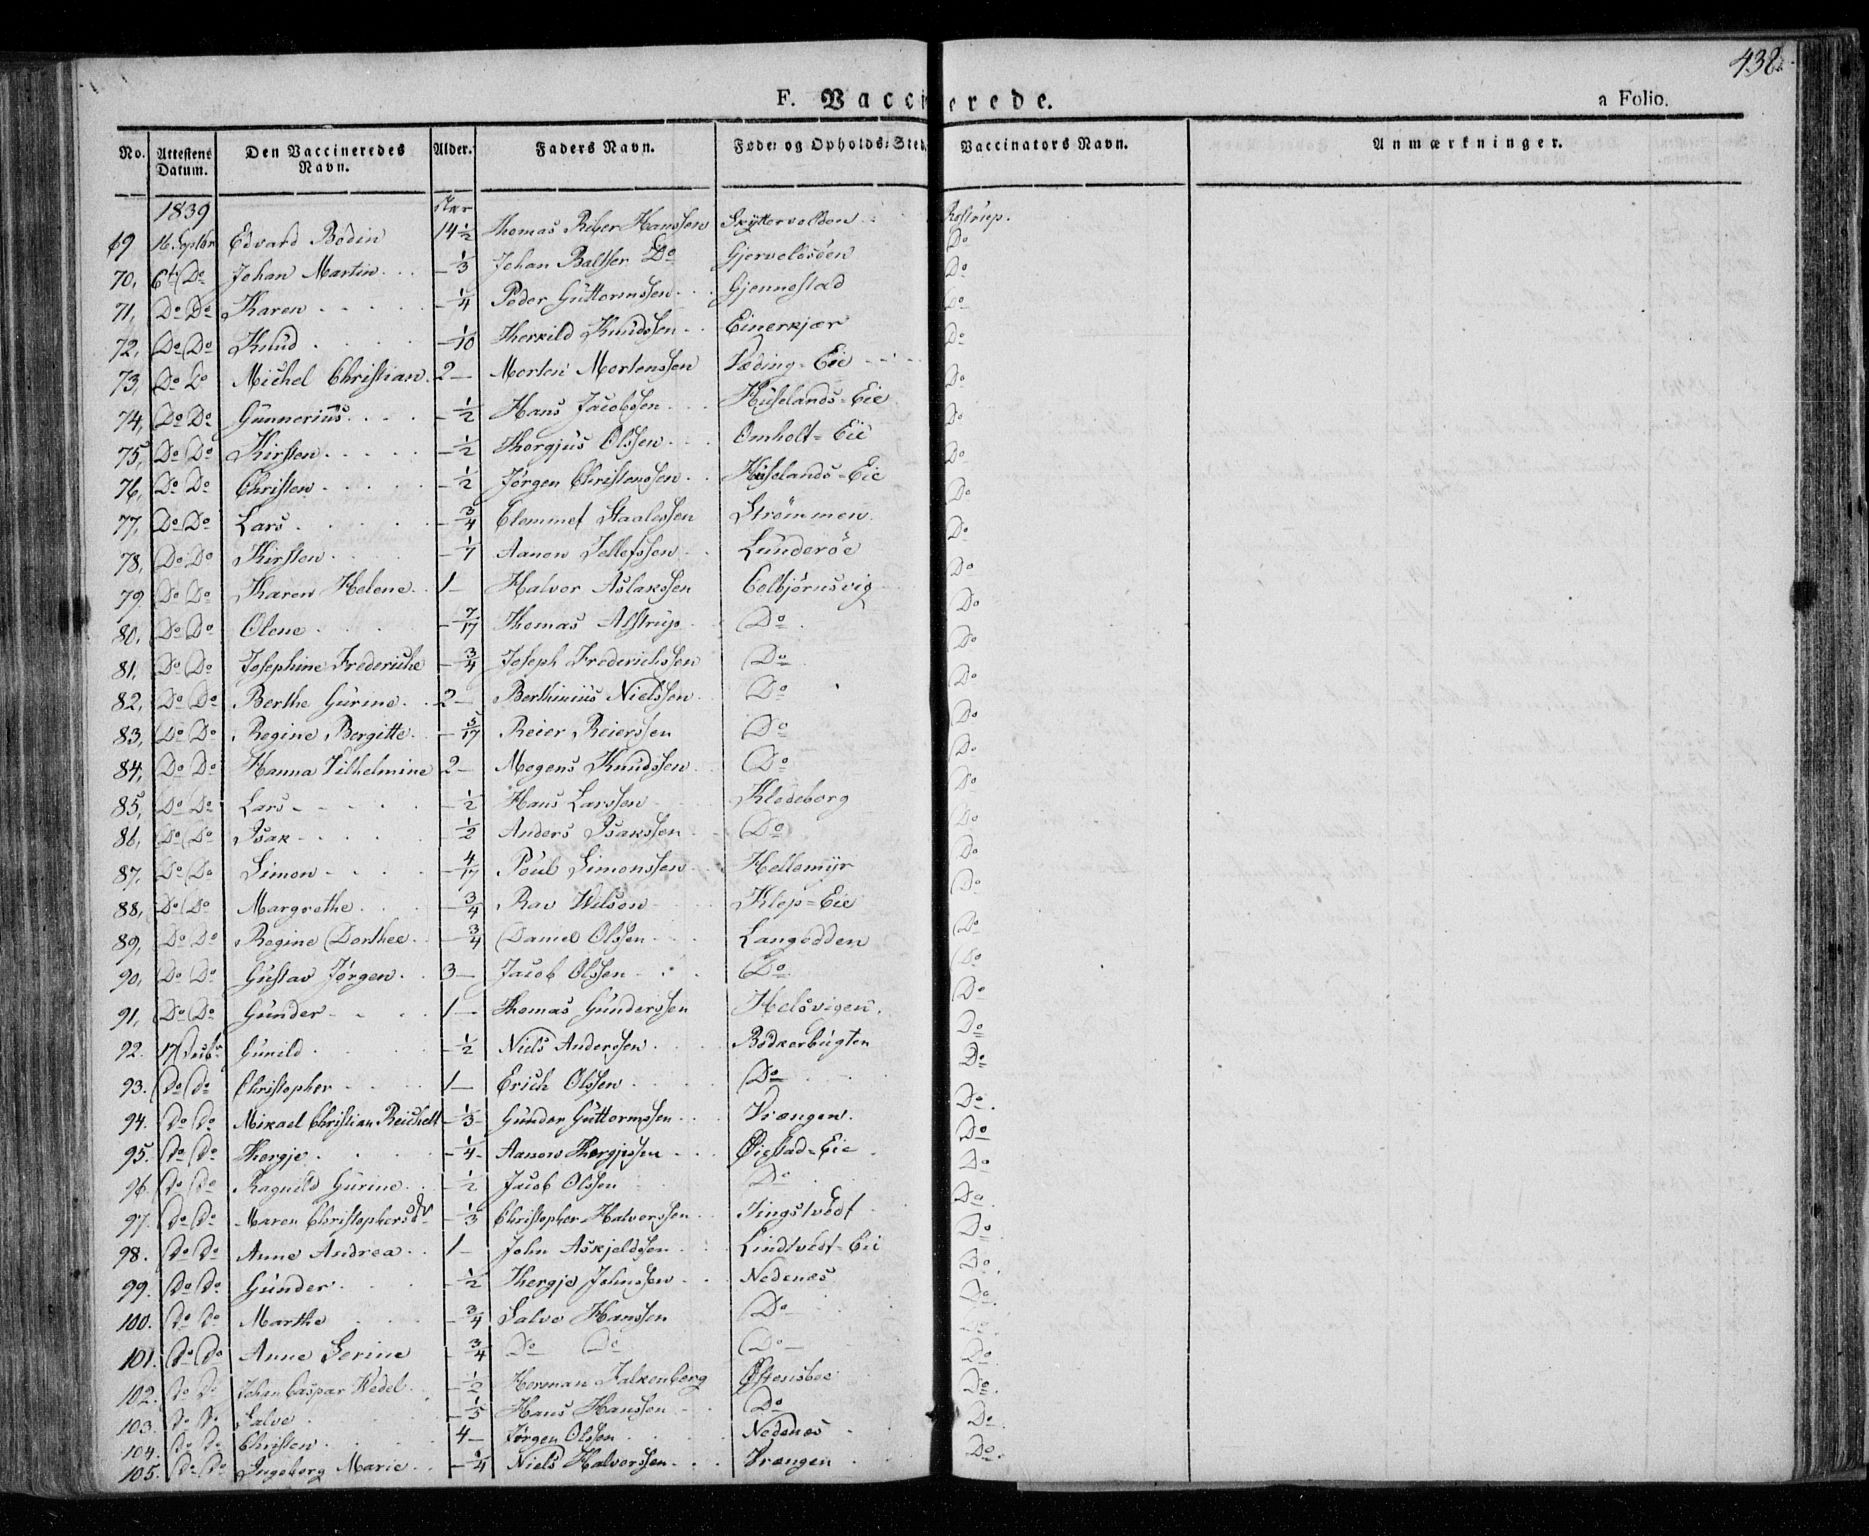 438
F. Vaccinerede.
a Folio.
No. Attestens Datum. Den Vaccineredes Navn. Alder. Faders Navn. Føde- og Opholds-Sted. Vaccinators Navn. Anmærkninger.
1839 Aar
69 16 Septbr Edvard Bodin 14 1/2 Thomas Riber Hanssen Skyttervolden Rostrup.
70, Do Johan Martin 1/3 Johan Baltser Do Gjervoldsöen Do
71, Do Do Karen 1/4 Peder Guttormssen Gjennestad Do
72, Do Do Knud 1/10 Therkild Knudssen Einerkjær Do
73, Do Do Michel Christian 2 Morten Mortenssen Løding-Eie Do
74, Do Do Gunnerius 1/2 Hans Jacobssen Huselands-Eie Do
75, Do Do Kirsten 1/2 Thorgjus Olssen Omholt-Eie Do
76, Do Do Christen 1/2 Jørgen Christenssen Huselands-Eie Do
77, Do Do Lars 3/4 Clemmet Staalessen Strömmen Do
78, Do Do Kirsten 1/7 Aanon Tellefssen Lunderöe Do
79, Do Do Karen Helene 1 Halvor Aslakssen Colbjörnsvig Do
80, Do Do Olene 7/17 Thomas Alstrup Do Do
81, Do Do Josephine Frederiche 3/4 Joseph Frederichssen Do Do
82, Do Do Berthe Gurine 2 Berthinius Nielssen Do Do
83, Do Do Regine Bergitte 5/17 Reier Reierssen Do Do
84, Do Do Hanna Vilhelmine 2 Mogens Knudssen Do Do
85, Do Do Lars 1/2 Hans Larssen Klodeborg Do
86, Do Do Isak 1/2 Anders Isakssen Do Do
87, Do Do Simon 4/17 Poul Simonssen Hellemyr Do
88, Do Do Margrethe 3/4 Rav Wilson Klep-Eie Do
89, Do Do Regine Dorthee 3/4 Daniel Olssen Langodden Do
90, Do Do Gustav Jørgen 3 Jacob Olssen Do Do
91, Do Do Gunder 1 Thomas Gunderssen Helsvigen Do
92. 17 Gunild 1/2 Niels Anderssen Bödkerbugten Do
93. Do Do Christopher 1 Erich Olssen Do Do
94. Do Do Mikael Christian Reichelt 1/3 Gunder Guttormssen Vrængen Do
95. Do Do Thergje 1/4 Aanon Thergjessen Øiestad-Eie Do
96. Do Do Ragnild Gurine 1/2 Jacob Olssen Do Do
97. Do Do Maren Christophersdr 1/3 Christopher Halvorssen Tingstvedt Do
98. Do Do Anne Andrea 1 John Askjeldssen Lindtvedt-Eie Do
99. Do Do Gunder 1/2 Thergje Johnssen Nedenes Do
100. Do Do Marthe 3/4 Salve Hanssen Do Do
101. Do Do Anne Serine 3/4 Do Do Do
102. Do Do Johan Caspar Wedel 1/2 Herman Falkenberg Østensboe Do
103. Do Do Salve 1/5 Hans Hanssen Do Do
104. Do Do Christen 4 Jørgen Olssen Nedenes Do
105. Do Do Ingeborg Marie 1/4 Niels Halvorssen Vrængen Do